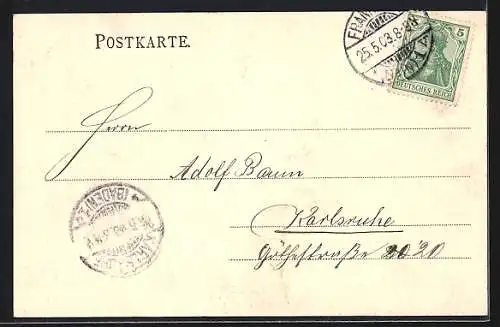 POSTKARTE.
25.5.03.8-9N
5
DEUTSCHES REICH
Herrn
Adolf Baum
Karlsruhe
Göthestraße 2020
(BADEN)